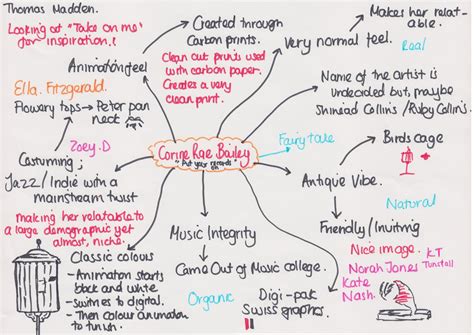 Thomas Madden.
Looking at "Take on me"
for inspiration!
Created through
Carbon prints.
Clean cut prints used
with carbon paper.
Creates a very
clean print.
Makes her relat-
able.
Very normal feel.
Real
Animation feel
Ella. Fitzgerald.
Flowery tops → Peter pan
neck
Zoey. D
Name of the artist is
undecided but, maybe
Shinead Collins / Ruby Collins!
Costuming,
Jazz/Indie with a
mainstream twist
making her relatable to
a large demographic yet
almost, niche.
Corine Rae Bailey
"Put your records
on
Fairytale
Birds cage
Antique Vibe.
Natural
Friendly/Inviting
Nice image.
KT
Tunstall
Norah Jones
Kate
Nash.
Music Integrity
Came Out of Music college.
Organic
Digi-pak
Swiss graphics
Classic colours
- Animation starts
black and white
- Switches to digital.
- Then colour animation
to finish